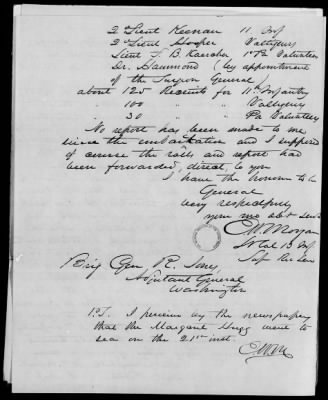 2 Lieut Keenan 11 Inf
2 Lieut Hooper Voltigeurs
Lieut T. B. Kaercher 1st Pa Volunteers
Dr. Hammond (by appointment
of the Surgeon General)
about 120 Recruits for 11th Infantry
100 " " Voltigeurs
30 " " Pa Volunteers
No report has been made to me
since the embarkation and I supposed
of course the rolls and report had
been forwarded, direct, to you
I have the honor to be
General
very respectfully
your mo obt Servt
C W Morgan
Lt Col 13 Inf
Supt
Brig Gen R. Jones
Adjutant General
Washington
P.S. I perceive by the newspapers
that the Margaret Hugg went to
sea on the 21st inst.
CWM